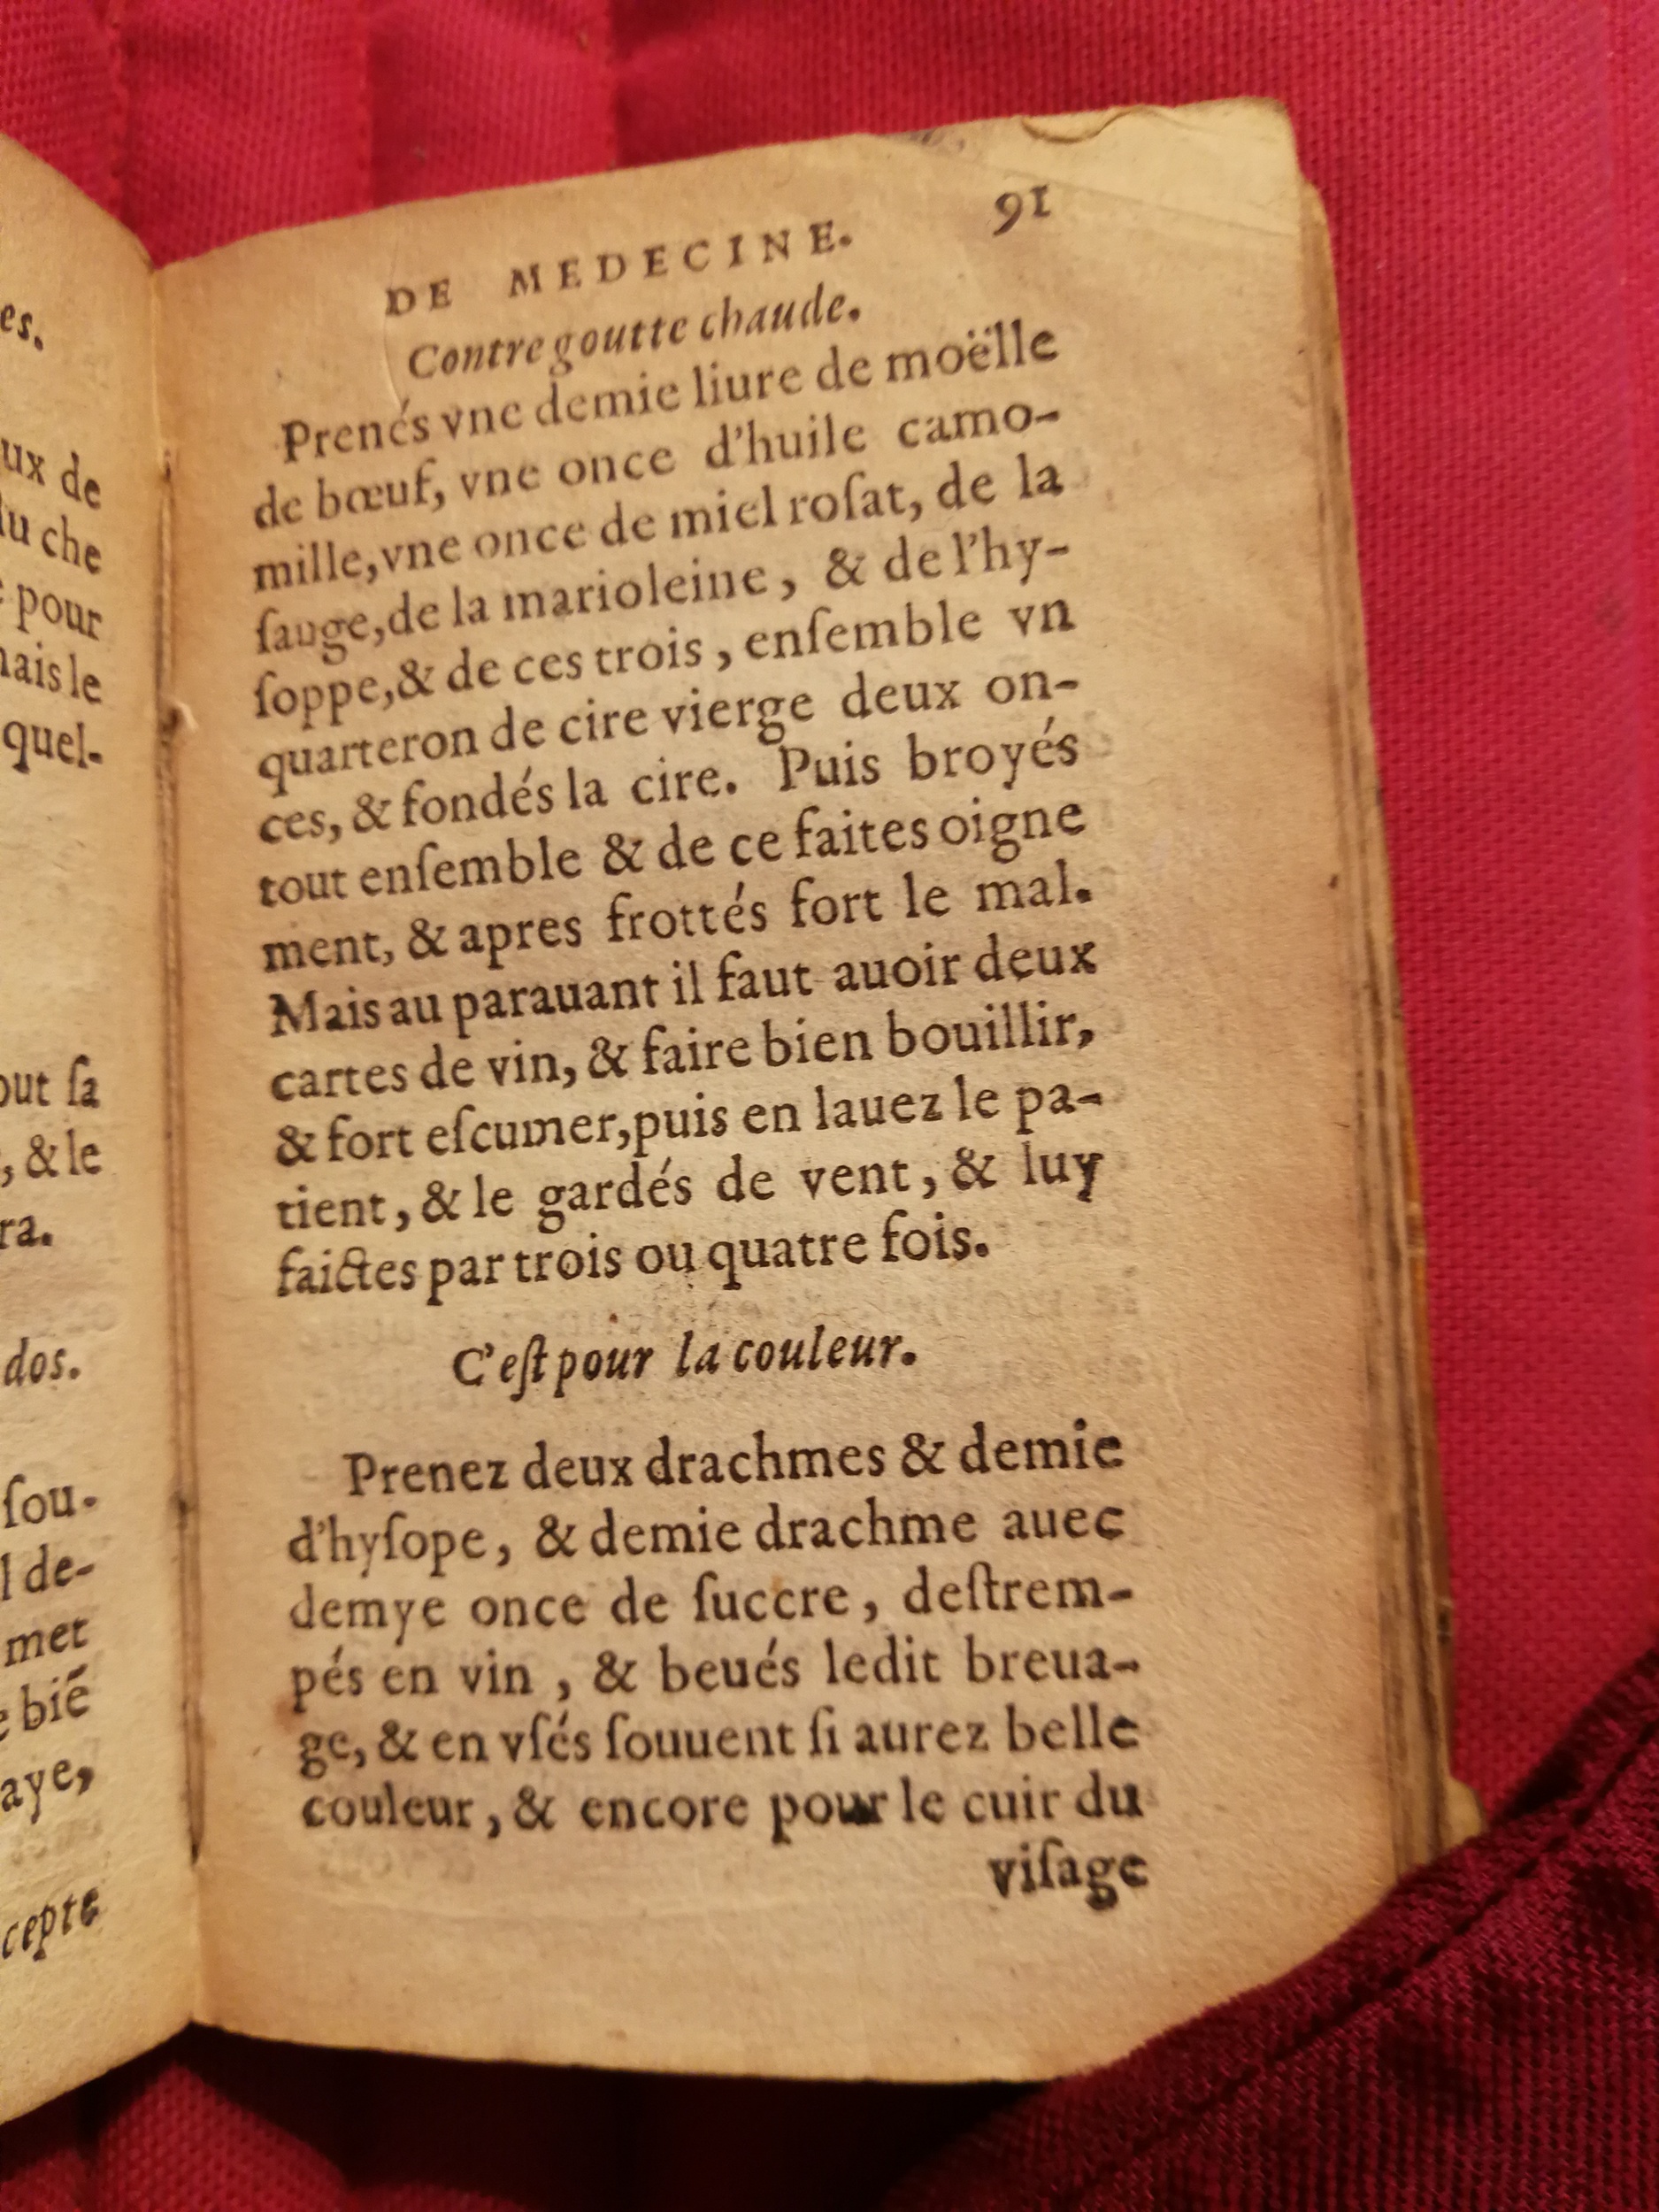 es.
ux de
du che
pour
mais le
quel-
out ſa
, & le
ra.
dos.
ſou-
l de-
met
e bié
aye,
cepte
DE MEDECINE. 91
Contre goutte chaude.
Prenés vne demie liure de moëlle
de bœuf, vne once d'huile camo-
mille, vne once de miel roſat, de la
ſauge, de la marioleine, & de l'hy-
ſoppe, & de ces trois, enſemble vn
quarteron de cire vierge deux on-
ces, & fondés la cire. Puis broyés
tout enſemble & de ce faites oigne
ment, & apres frottés fort le mal.
Mais au parauant il faut auoir deux
cartes de vin, & faire bien bouillir,
& fort eſcumer, puis en lauez le pa-
tient, & le gardés de vent, & luy
faictes par trois ou quatre fois.
C'eſt pour la couleur.
Prenez deux drachmes & demie
d'hyſope, & demie drachme auec
demye once de ſuccre, deſtrem-
pés en vin, & beués ledit breua-
ge, & en vſés ſouuent ſi aurez belle
couleur, & encore pour le cuir du
viſage